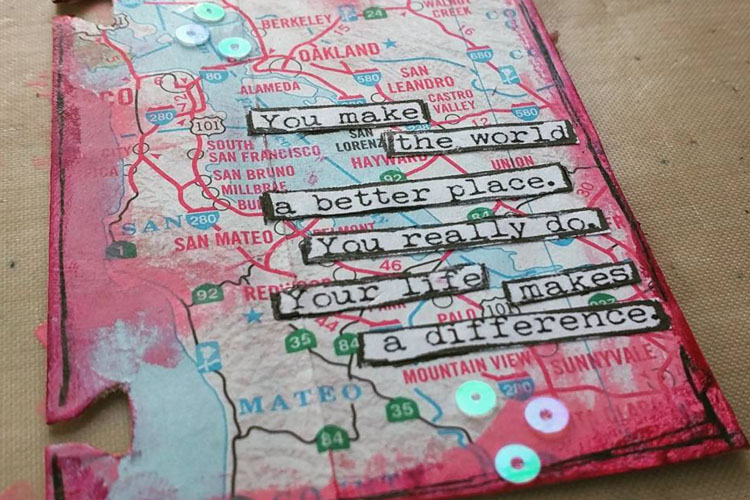 WALNUT CREEK
BERKELEY
24
15
OAKLAND
80
580
6
ALAMEDA
SAN LEANDRO
CO
280
101
CASTRO VALLEY
580
You make
12
SAN
LOREN
the world
CITY
SOUTH SAN FRANCISCO
HAYWARD
UNION
PICA
SAN BRUNO
92
MILLBRAE
30
BU
a better place.
SAN
280
84
1
SAN MATEO
MONT
You really do.
46
92
RED
Your life
makes
44
PALO
101
35
84
a difference.
MOUNTAIN VIEW
SUNNYVALE
280
MATEO
35
84